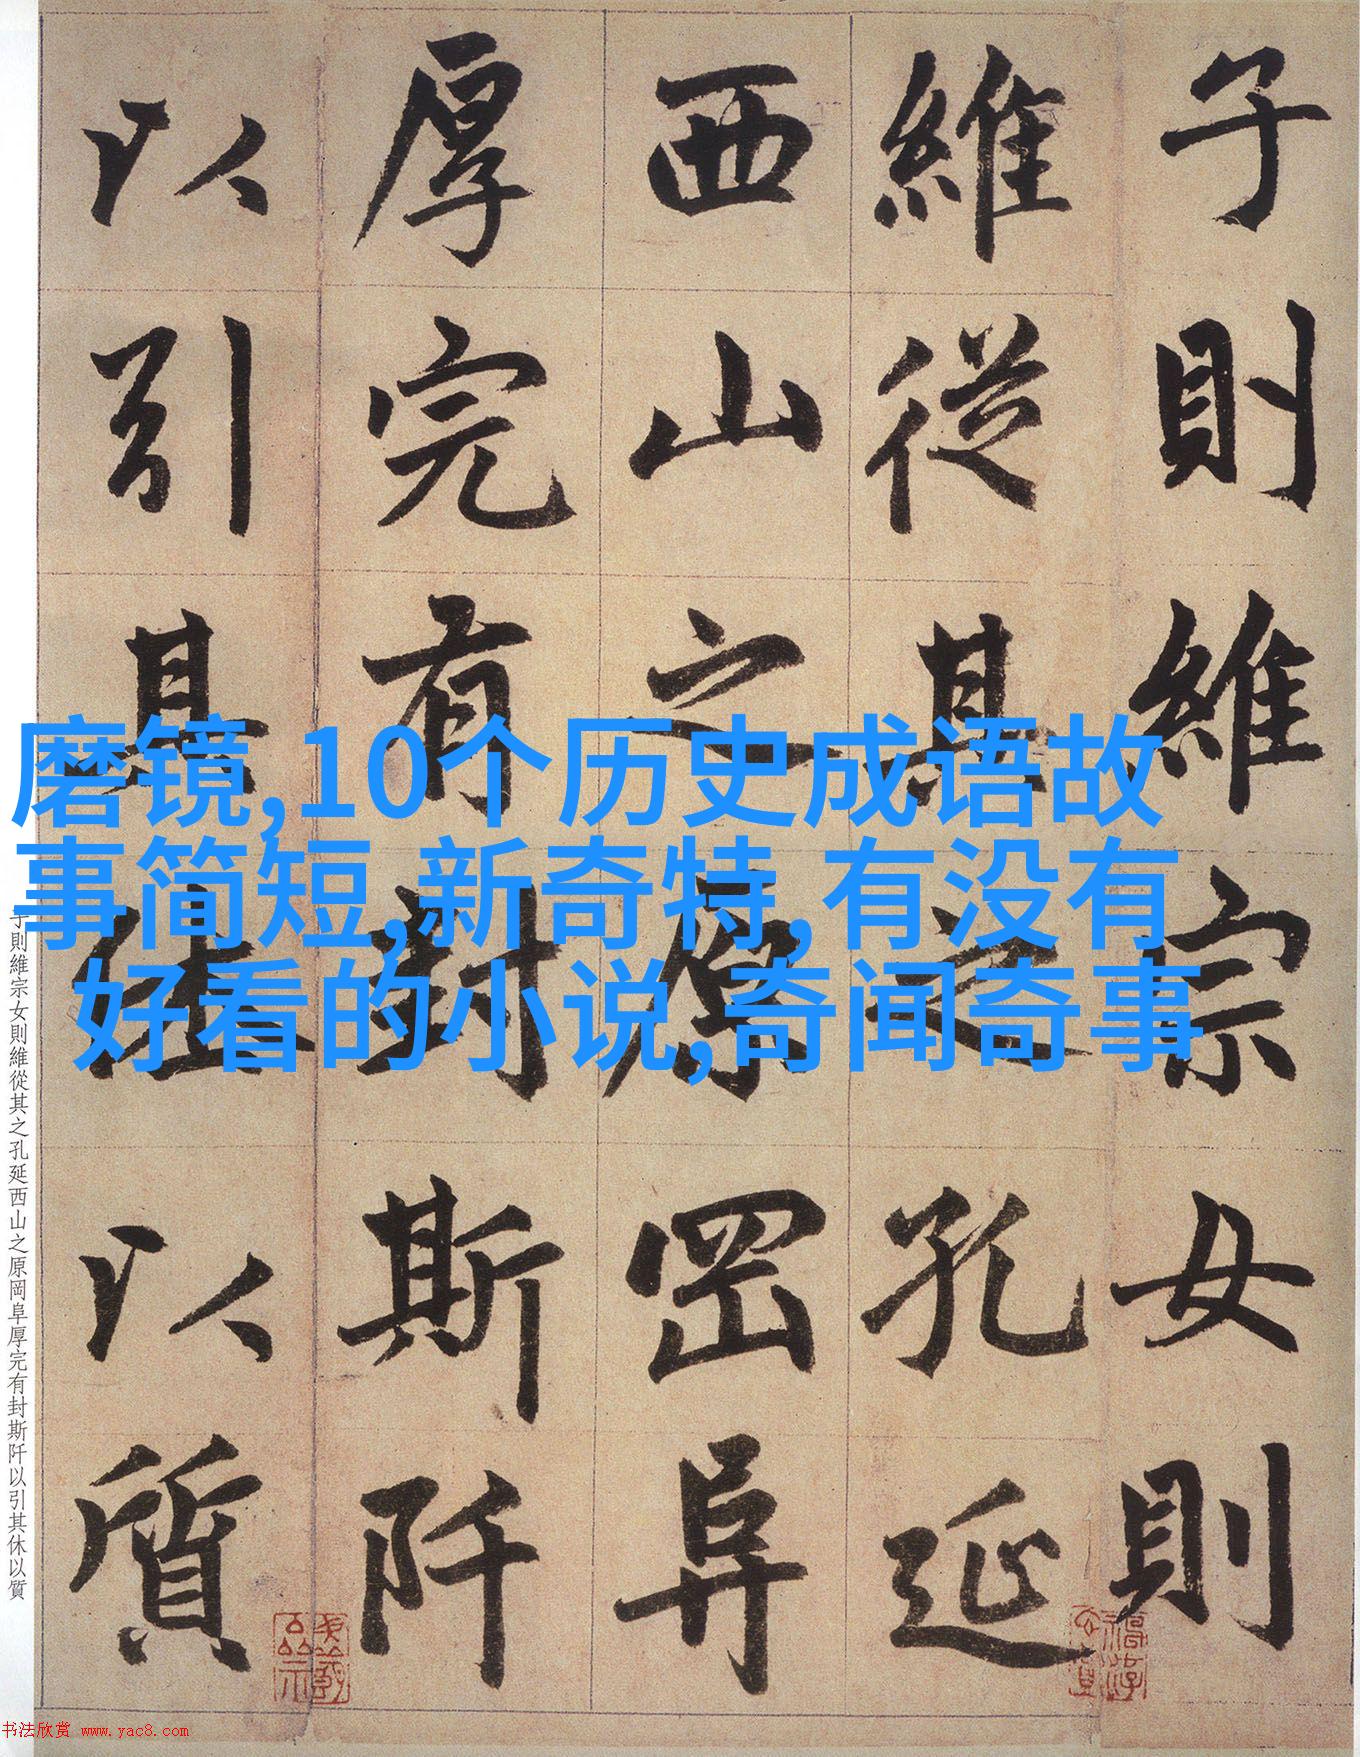 子則維宗女則
維從其之孔延
西山之原岡阜
厚完有封斯阡
以引其休以質
磨镜,10个历史成语故
事简短,新奇特,有没有
好看的小说,奇闻奇事
子則維宗女則維從其之孔延西山之原岡阜厚完有封斯阡以引其休以質
书法欣赏 www.yac8.com